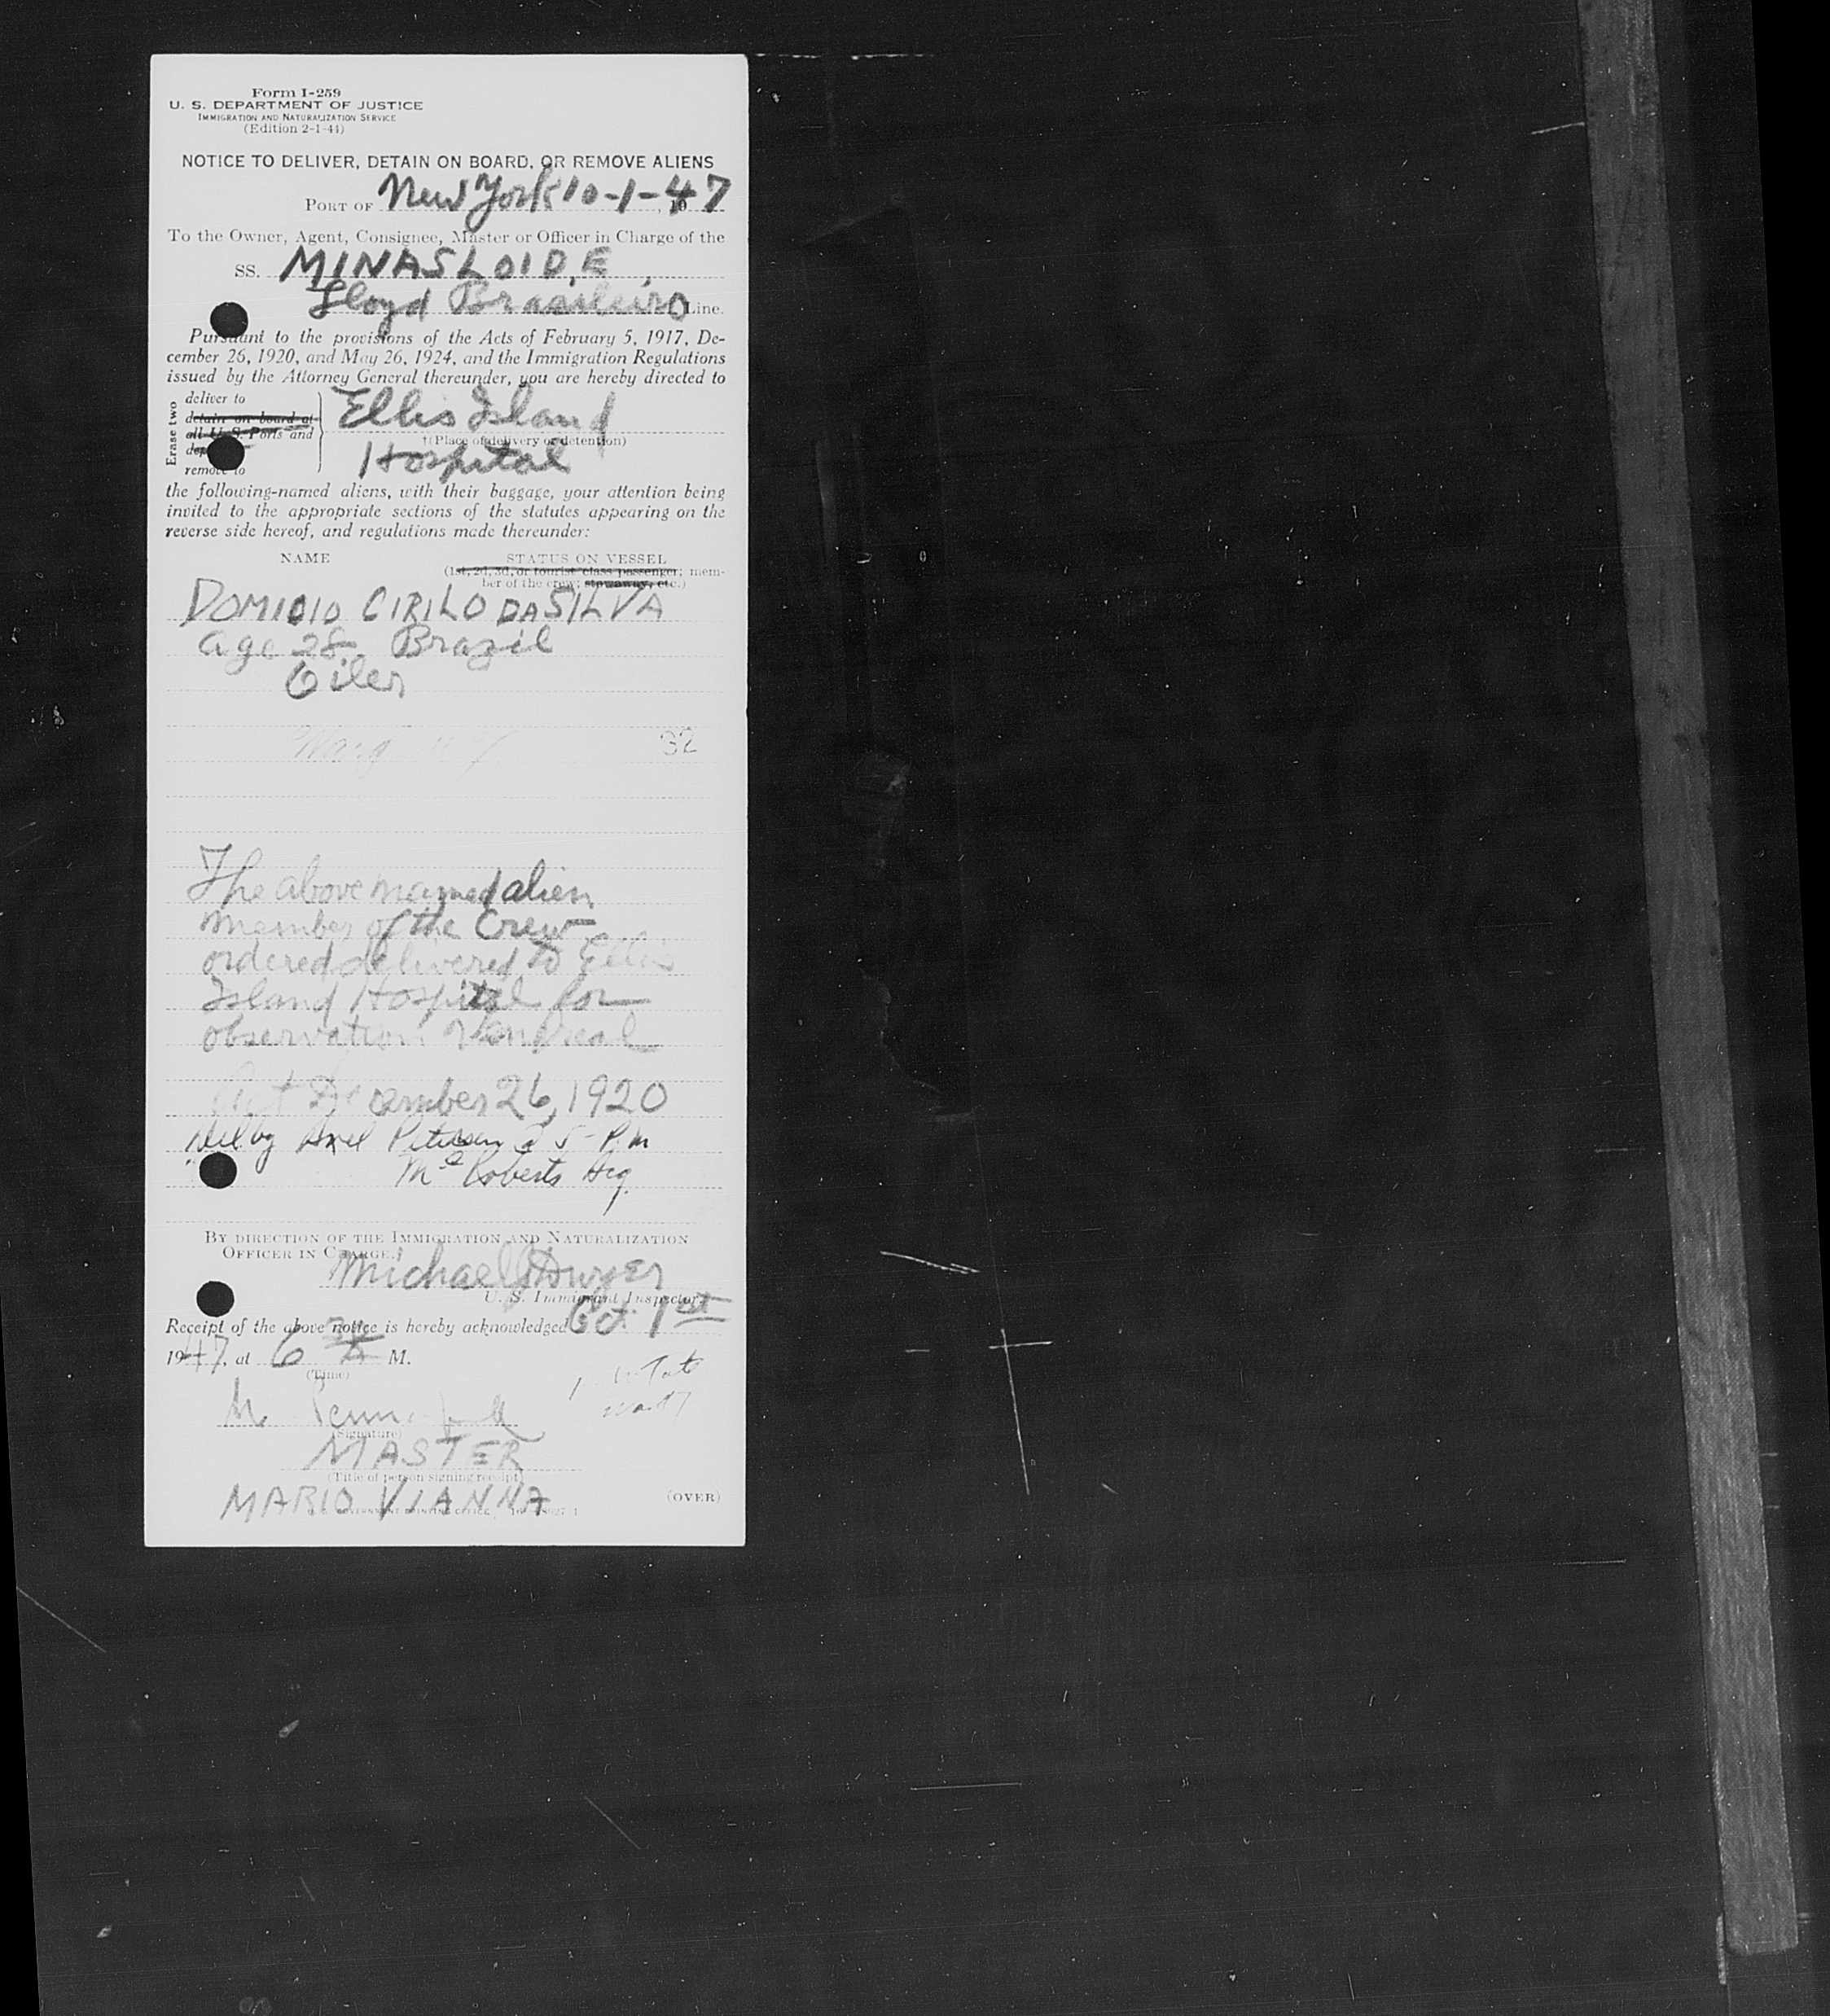 Form I-259
U. S. DEPARTMENT OF JUSTICE
IMMIGRATION AND NATURALIZATION SERVICE
(Edition 2-1-41)
NOTICE TO DELIVER, DETAIN ON BOARD, OR REMOVE ALIENS
PORT OF New York 10-1-47
To the Owner, Agent, Consignee, Master or Officer in Charge of the
SS. MINASLOIDE,
Lloyd Brasileiro Line.
Pursuant to the provisions of the Acts of February 5, 1917, De-
cember 26, 1920, and May 26, 1924, and the Immigration Regulations
issued by the Attorney General thereunder, you are hereby directed to
Erase two
deliver to
detain on board at
all U. S. Ports and
remove to
Ellis Island
†(Place of delivery or detention)
Hospital
the following-named aliens, with their baggage, your attention being
invited to the appropriate sections of the statutes appearing on the
reverse side hereof, and regulations made thereunder:
NAME STATUS ON VESSEL
(1st, 2d, 3d, or tourist class passenger; mem-
ber of the crew; stowaway, etc.)
DOMICIO CIRILO DA SILVA
age 28. Brazil
Oiler
32
The above named alien
member of the Crew
ordered delivered to Ellis
Island Hospital for
observation Venereal
Act December 26, 1920
Axel Petersen 5- P.M
McRoberts
BY DIRECTION OF THE IMMIGRATION AND NATURALIZATION
OFFICER IN CHARGE.
Michael J Dwyer
U. S. Immigrant Inspector.
Receipt of the above notice is hereby acknowledged Oct 1st
1947, at 6 30 A M.
(Time)
(Signature)
MASTER
(Title of person signing receipt)
MARIO VIANNA
(OVER)
U. S. GOVERNMENT PRINTING OFFICE